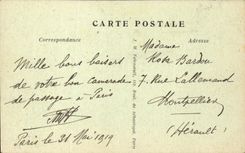 CARTE POSTALE
Correspondance
Adresse
Mille bons baisers
de votre bon camarade
de passage à Paris
Paris le 21 Mai 1919
Madame
Rose Bardou
7. Rue Lallemand
Montpellier
(Hérault)